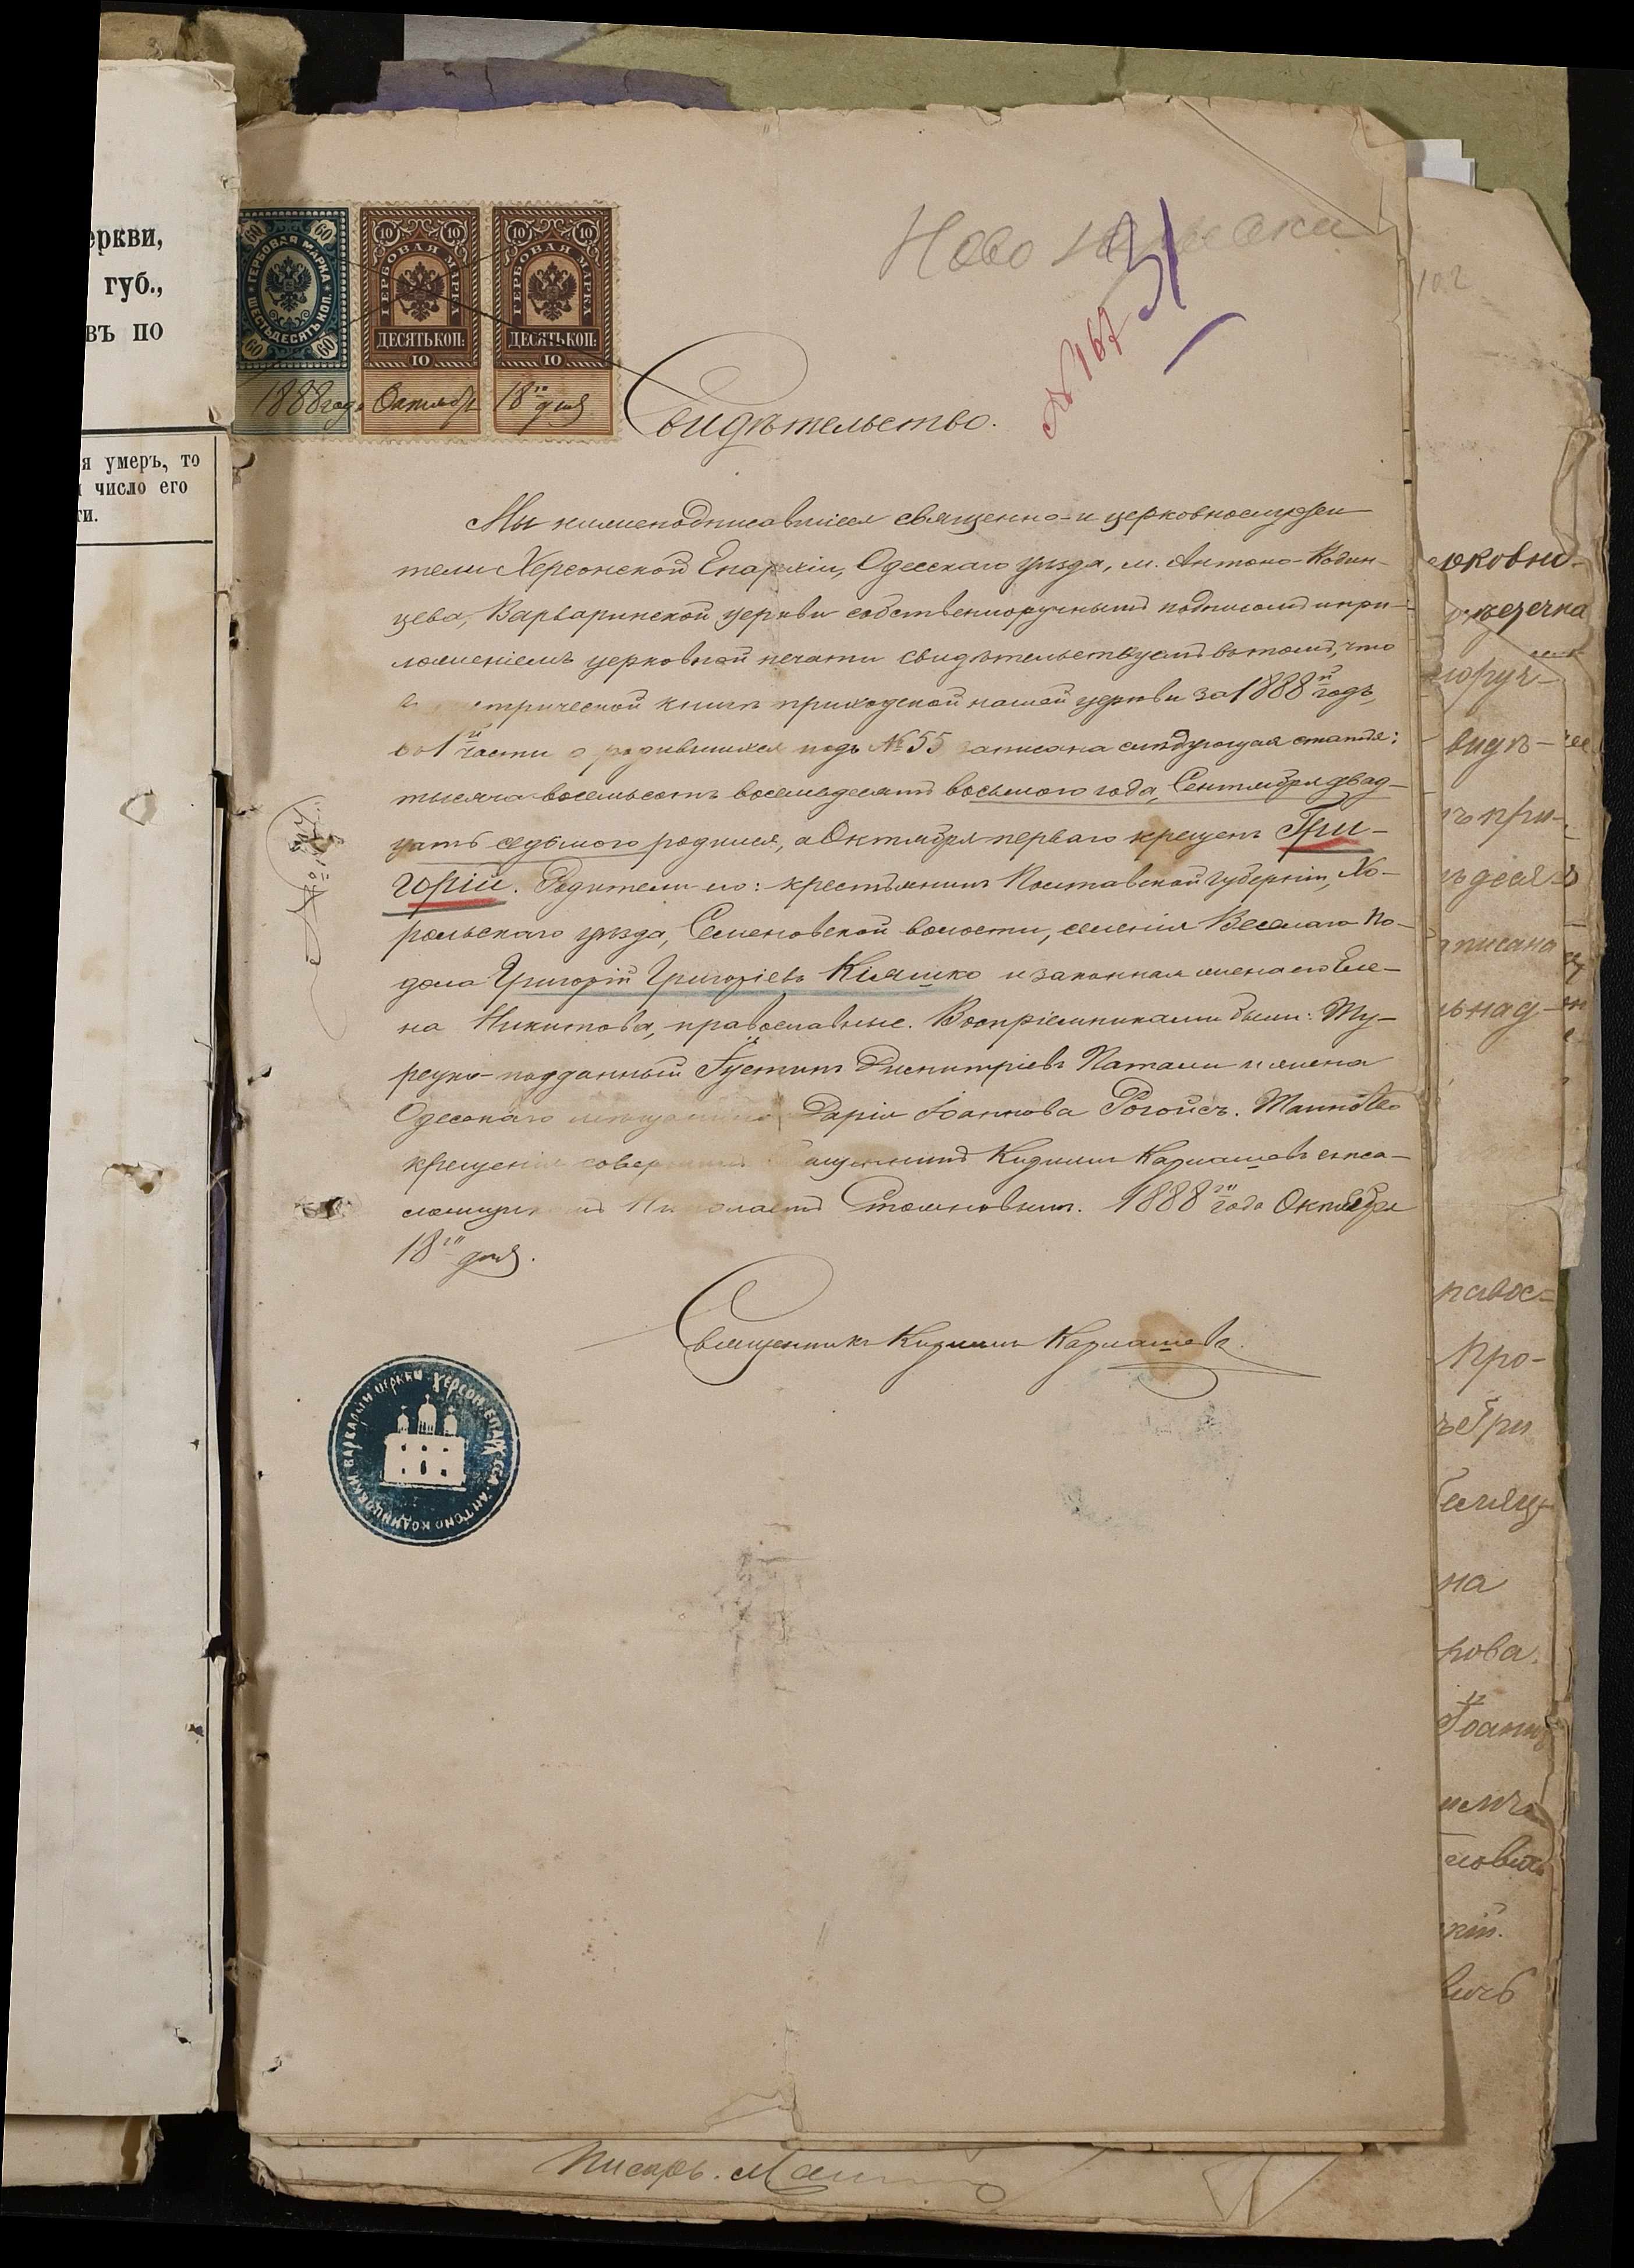 еркви,
губ.,
въ по
я умеръ, то
число его
ти.
60 60
ГЕРБОВАЯ МАРКА
ШЕСТЬДЕСЯТЪ КОП.
60 60
10 10
ГЕРБОВАЯ МАРКА
ДЕСЯТЬ КОП:
10
10 10
ГЕРБОВАЯ МАРКА
ДЕСЯТЬ КОП:
10
1888 года Октября 18го дня
Ново
31
№ 167
102
Свидѣтельство.
Мы нижеподписавшіеся священно-и церковнослужи
тели Херсонской Епархіи, Одесскаго уѣзда, м. Антоно-Кодин-
цева, Варваринской церкви собственноручнымъ подписомъ и при-
ложеніемъ церковной печати свидѣтельствуемъ въ томъ, что
в трической книгѣ приходской нашей церкви за 1888й годъ,
въ 1й части о родившихся подъ № 55 записана слѣдующая статья:
тысяча восемьсотъ восемьдесятъ восьмого года, Сентября двад-
цать седьмого родился, а Октября перваго крещенъ Гри-
горій. Родители его: крестьянинъ Полтавской губерніи, Хо-
рольскаго уѣзда, Семеновской волости, селенія Веселаго По-
дола Григорій Григоріевъ Кіяшко и законная жена его Еле-
на Никитова, православные. Воспріемниками были: Ту-
рецко-подданный Густинъ Димитріевъ Патали и жена
Одесскаго мѣщанина Дарія Іоаннова Рогойсъ. Таинство
крещенія совершилъ Священникъ Кирилъ Карташевъ съ пса-
ломщикомъ Николаемъ Стояновымъ. 1888го года Октября
18го дня.
Священникъ Кирилъ Карташевъ.
ВАРВАРЫН ЦЕРКВЫ ХЕРСОН. ЕПАРХ. ОДЕССА. АНТОНО КОДИНЦОВКИ
оковно-
оручн-
видѣ-
ъ при-
ъ деся-
аписана
ьнад-
павос-
Про-
ъ Гри
на
рова.
Іоанн
кій.
вичъ
Писарь.